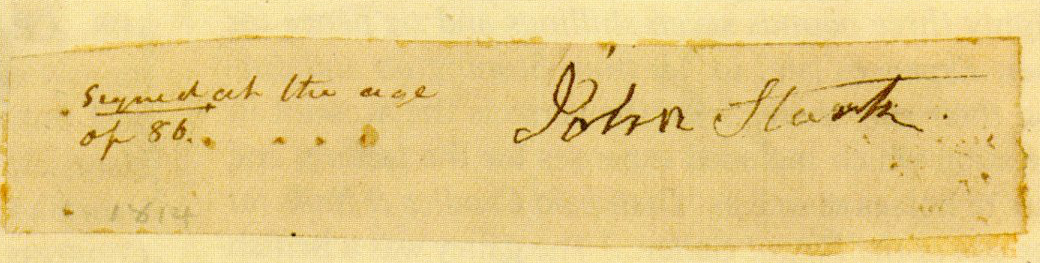 Signed at the age
of 86.
John Stark.
1814